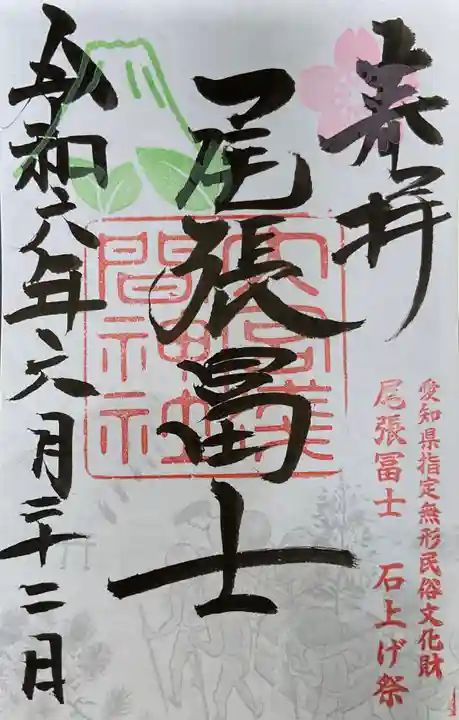 奉拝
愛知県指定無形民俗文化財
尾張冨士 石上げ祭
尾張冨士
大宮浅
間神社
令和六年六月二十二日